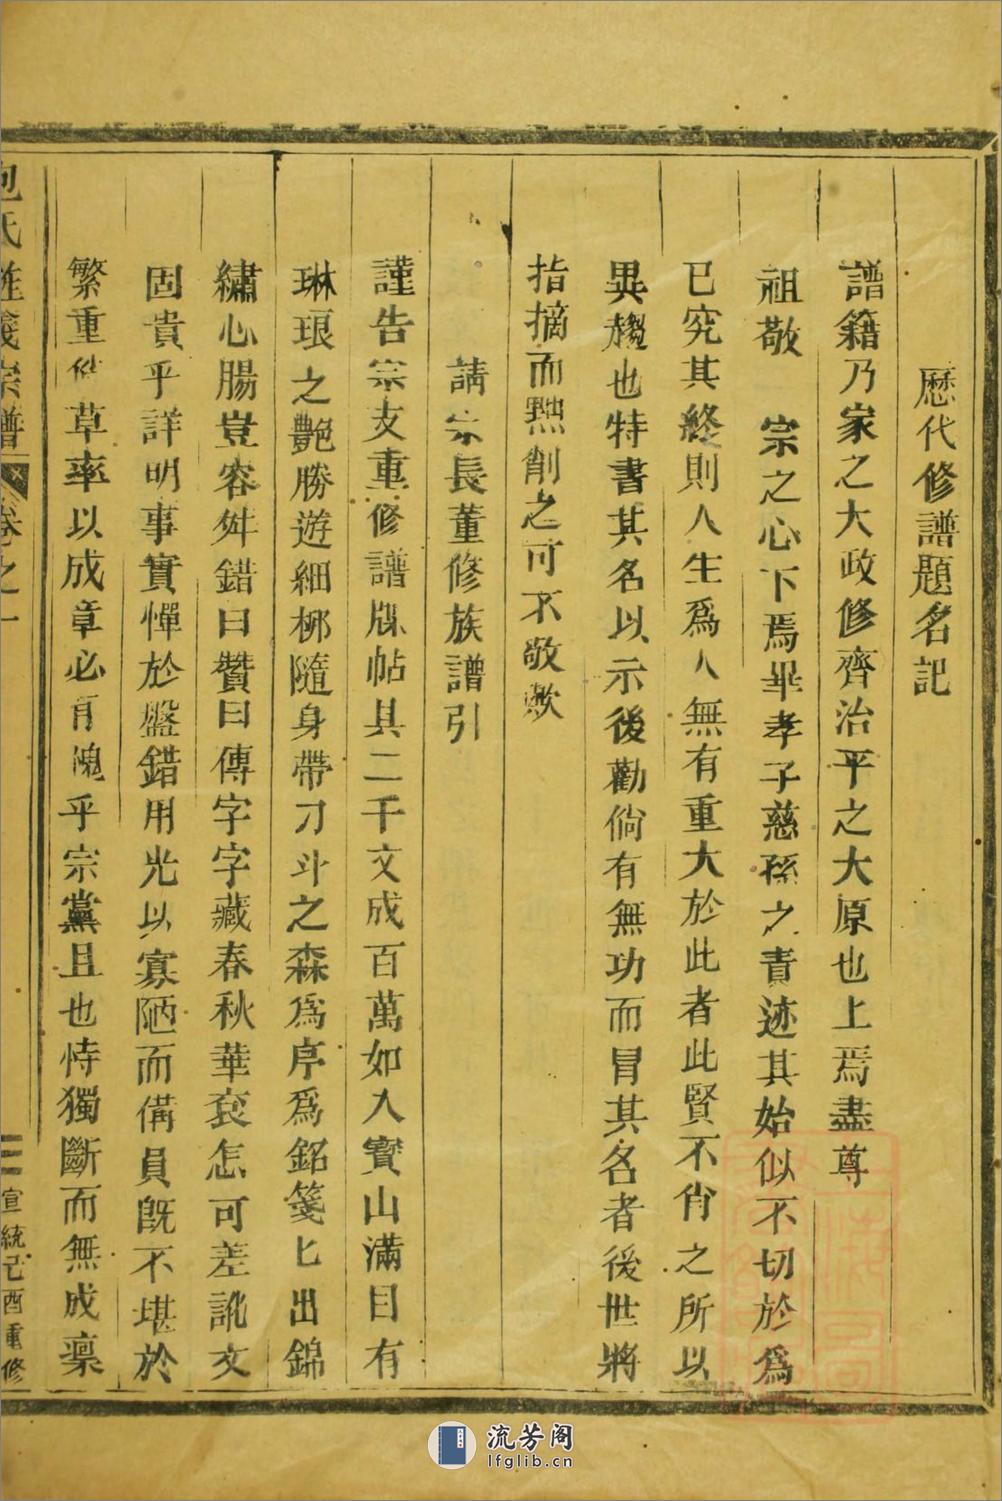 歷代修譜題名記
譜籍乃家之大政修齊治平之大原也上焉盡尊
祖敬　宗之心下焉畢孝子慈孫之責迹其始似不切於爲
已究其終則人生爲人無有重大於此者此賢不肖之所以
異趨也特書其名以示後勸倘有無功而冒其名者後世將
指摘而㸃削之可不敬歟
請宗長董修族譜引
謹告宗支重修譜牒帖具二千文成百萬如入寳山滿目有
琳琅之艷勝遊細柳隨身帶刀斗之森爲序爲銘箋匕出錦
繡心腸豈容舛錯曰贊曰傳字字藏春秋華衮怎可差訛文
固貴乎詳明事實憚於盤錯用光以寡陋而備員旣不堪於
繁重修草率以成章必有愧乎宗黨且也恃獨斷而無成稟
包氏 宗譜
卷之一
三
宣統己酉重修
流芳阁
lfglib.cn